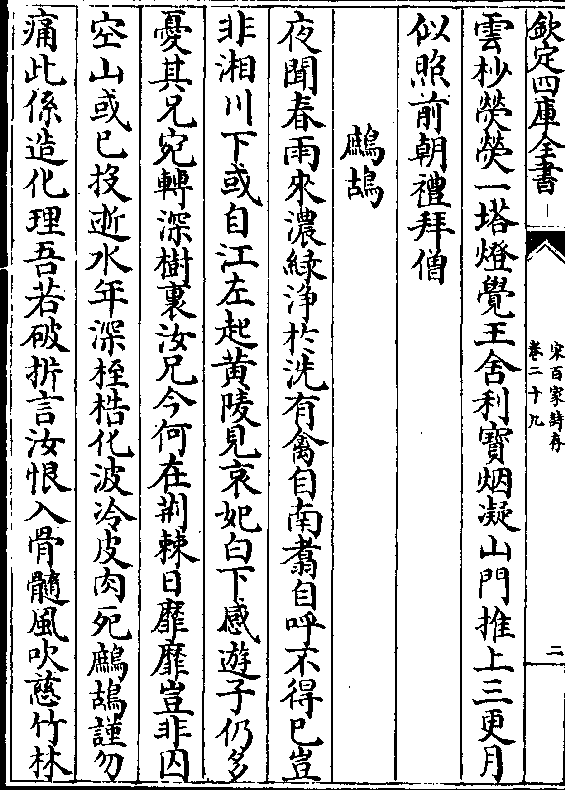 欽定四庫全書
宋百家詩存
卷二十九
二
雲杪熒熒一塔燈覺王舍利寳烟凝山門推上三更月
似照前朝禮拜僧
鷓鴣
夜聞春雨來濃緑浄扵洗有禽自南翥自呼不得已豈
非湘川下或自江左起黄陵見哀妃白下感遊子仍多
憂其兄宛轉深樹裏汝兄今何在荆棘日靡靡豈非囚
空山或已投逝水年深桎梏化波冷皮肉死鷓鴣謹勿
痛此係造化理吾若破折言汝恨入骨髓風吹慈竹林